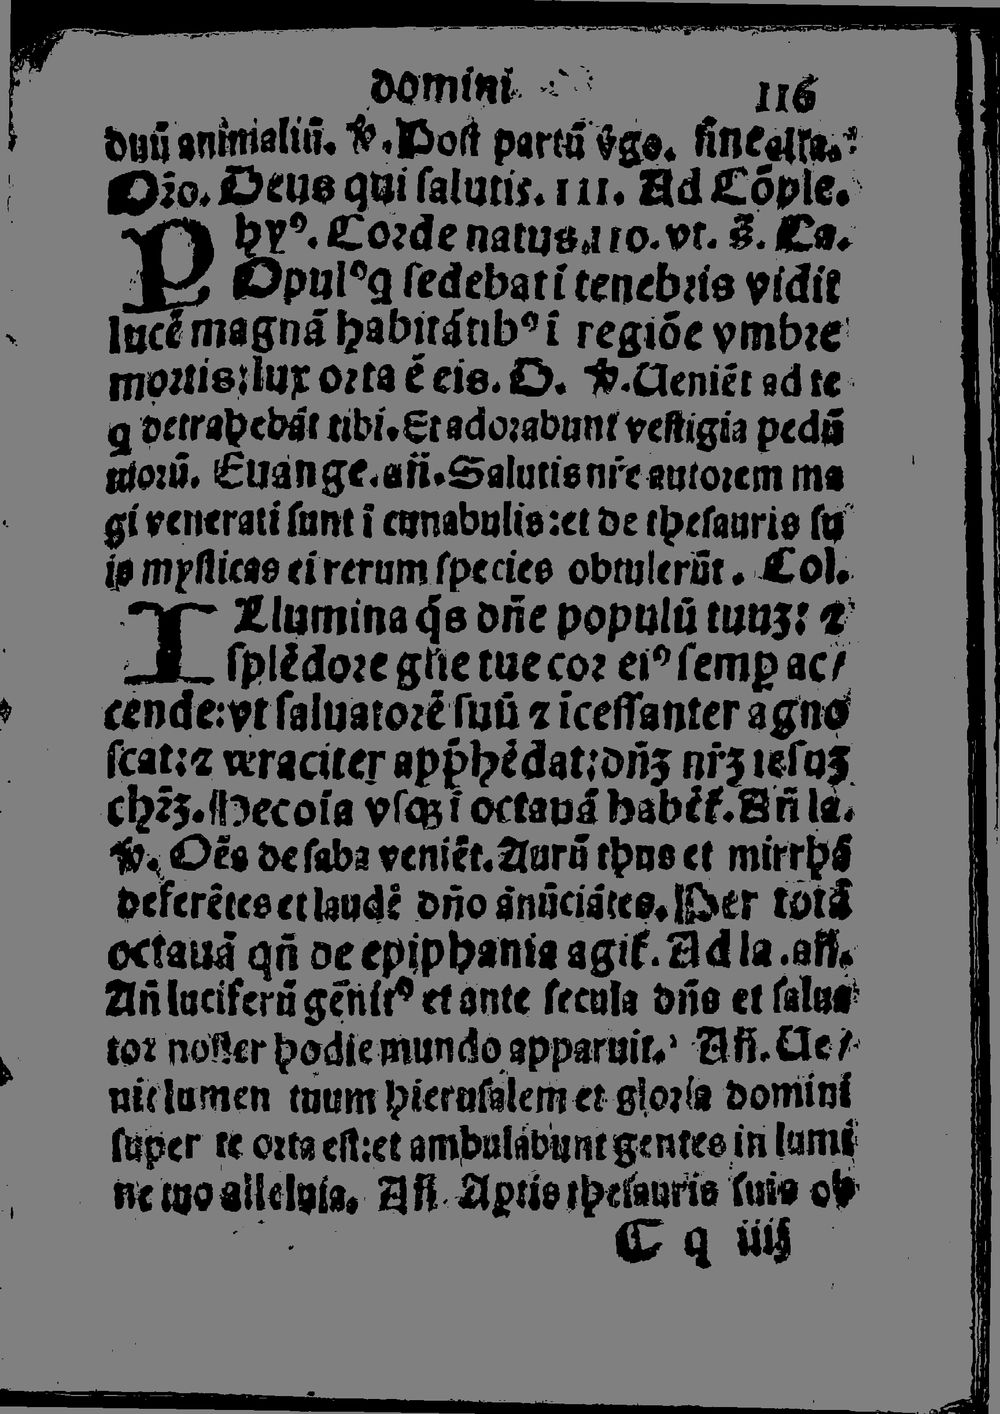 domini 116
duū animaliū. ℣. Post partū v̄go. sine alla.
Oꝛo. Deus qui salutis. 111. Ad Cōple.
hyꝰ. Coꝛde natus. 110. vt. s̄. Ca.
POpulꝰ q sedebat ī tenebꝛis vidit
lucē magnā habitātibꝰ ī regiōe vmbꝛe
moꝛtis: lux oꝛta ē eis. D. ℣. Ueniēt ad te
q detrahebāt tibi. Et adoꝛabunt vestigia pedū
tuoꝛū. Euange. an̄. Salutis nr̄e autoꝛem ma
gi venerati sunt ī cunabulis: et de thesauris su
is mysticas ei rerum species obtulerūt. Col.
ILlumina q̄s dn̄e populū tuuꝫ: ⁊
splēdoꝛe gr̄e tue coꝛ eiꝰ semꝑ ac/
cende: vt saluatoꝛē suū ⁊ īcessanter agno
scat: ⁊ veraciter apꝓhēdat: dn̄ꝫ nr̄ꝫ iesuꝫ
chr̄ꝫ. Mecoīa vsqꝫ ī octauā habēt̄. An̄ la.
℣. Oēs de saba veniēt. Aurū thus et mirrhā
deferētes et laudē dn̄o ānūciātes. Per totā
octauā qn̄ de epiphania agit̄. Ad la. an̄.
An̄ luciferū gēnitꝰ et ante secula dn̄s et salua
toꝛ noster hodie mundo apparuit. An̄. Ue/
nit lumen tuum hierusalem et gloꝛia domini
super te oꝛta est: et ambulabunt gentes in lumi
ne tuo alleluia. An̄ Aꝑtis thesauris suis ob
C q iiij